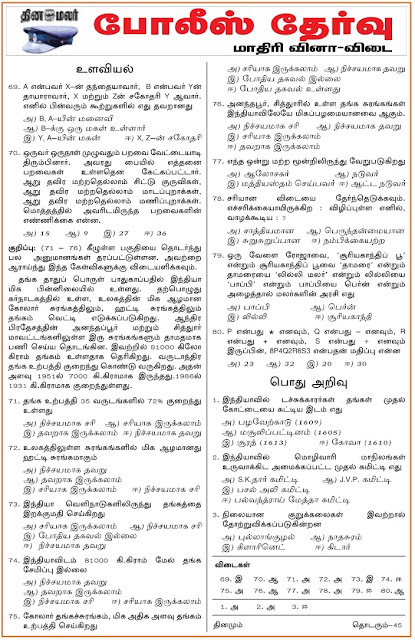 தின மலர்
போலீஸ் தேர்வு
மாதிரி வினா-விடை
உளவியல்
69. A என்பவர் X-ன் தந்தையாவார், B என்பவர் Yன்
தாயாராவார், X மற்றும் Zன் சகோதரி Y ஆவார்.
எனில் பின்வரும் கூற்றுகளில் எது தவறானது
அ) B, A-யின் மனைவி
ஆ) B-க்கு ஒரு மகள் உள்ளார்
இ) Y, A-யின் மகன் ஈ) X, Z-ன் சகோதரி
70. ஒருவர் ஒருநாள் முழுவதும் பறவை வேட்டையாடி
திரும்பினார். அவரது பையில் எத்தனை
பறவைகள் உள்ளதென கேட்கப்பட்டார்.
ஆறு தவிர மற்றதெல்லாம் சிட்டு குருவிகள்,
ஆறு தவிர மற்றதெல்லாம் மாடப்புறாக்கள்,
ஆறு தவிர மற்றதெல்லாம் மணிப்புறாக்கள்.
மொத்தத்தில் அவரிடமிருந்த பறவைகளின்
எண்ணிக்கை என்ன.
அ) 18 ஆ) 9 இ) 27 ஈ) 36
குறிப்பு: (71 – 76) கீழுள்ள பகுதியை தொடர்ந்து
பல அனுமானங்கள் தரப்பட்டுள்ளன. அவற்றை
ஆராய்ந்து இந்த கேள்விகளுக்கு விடையளிக்கவும்.
தங்க தாதுப் பொருள் பாதுகாப்பதில் இந்தியா
மிக பின்னிலையில் உள்ளது. தற்பொழுது
கர்நாடகத்தில் உள்ள, உலகத்தின் மிக ஆழமான
கோலார் சுரங்கத்திலும், ஹட்டி சுரங்கத்திலும்
தங்கம் வெட்டி எடுக்கப்படுகிறது. ஆந்திர
பிரதேசத்தின் அனந்தப்பூர் மற்றும் சித்தூர்
மாவட்டங்களிலுள்ள இரு சுரங்கங்களும் தாமதமாக
பணி செய்ய தொடங்கின. இவற்றில் 81000 கிலோ
கிராம் தங்கம் உள்ளதாக தெரிகிறது. வருடாந்திர
தங்க உற்பத்தி குறைந்து கொண்டு வருகிறது. அதன்
அளவு 1951ல் 7000 கி.கிராமாக இருந்தது.1986ல்
1931 கி.கிராமாக குறைந்துள்ளது.
71. தங்க உற்பத்தி 35 வருடங்களில் 72% குறைந்து
உள்ளது
அ) நிச்சயமாக சரி ஆ) சரியாக இருக்கலாம்
இ) தவறாக இருக்கலாம் ஈ) நிச்சயமாக தவறு
72. உலகத்திலுள்ள சுரங்கங்களில் மிக ஆழமானது
ஹட்டி சுரங்கமாகும்
அ) நிச்சயமாக தவறு
ஆ) தவறாக இருக்கலாம்
இ) சரியாக இருக்கலாம் ஈ) நிச்சயமாக சரி
73. இந்தியா வெளிநாடுகளிலிருந்து தங்கத்தை
இறக்குமதி செய்கிறது
அ) சரியாக இருக்கலாம் ஆ) நிச்சயமாக சரி
இ) போதிய தகவல் இல்லை
ஈ) நிச்சயமாக தவறு
74. இந்தியாவிடம் 81000 கி.கிராம் மேல் தங்க
சேமிப்பு இல்லை
அ) நிச்சயமாக தவறு
ஆ) தவறாக இருக்கலாம்
இ) நிச்சயமாக சரி ஈ) சரியாக இருக்கலாம்
75. கோலார் தங்கச்சுரங்கம், மிக அதிக அளவு தங்கம்
உற்பத்தி செய்கிறது
அ) சரியாக இருக்கலாம் ஆ) நிச்சயமாக தவறு
இ) போதிய தகவல் இல்லை
ஈ) தவறாக இருக்கலாம்
76. அனந்தபூர், சித்தூரில் உள்ள தங்க சுரங்கங்கள்
இந்தியாவிலேயே மிகப்பழமையானவை ஆகும்.
அ) நிச்சயமாக சரி ஆ) நிச்சயமாக தவறு
இ) சரியாக இருக்கலாம்
ஈ) தவறாக இருக்கலாம்
77. எந்த ஒன்று மற்ற மூன்றிலிருந்து வேறுபடுகிறது
அ) ஆலோசகர் ஆ) நடுவர்
இ) மத்தியஸ்தம் செய்பவர் ஈ) ஆட்ட நடுவர்
78. சரியான விடையை தேர்ந்தெடுக்கவும்.
எச்சரிக்கையாயிருக்கிற : விழிப்புள்ள எனில்,
வாழக்கூடிய : ?
அ) சாத்தியமான ஆ) பெருந்தன்மையான
இ) சுறுசுறுப்பான ஈ) நம்பிக்கையற்ற
79. ஒரு வேளை ரோஜாவை, 'சூரியகாந்திப் பூ'
என்றும் சூரியகாந்திப் பூவை 'தாமரை' என்றும்
தாமரையை 'லில்லி மலர்' என்றும் லில்லியை
'பாப்பி' என்றும் பாப்பியை பெர்ன் என்றும்
அழைத்தால் மலர்களின் அரசி எது
அ) பாப்பி ஆ) பெர்ன்
இ) லில்லி ஈ) சூரியகாந்தி
80. P என்பது ★ எனவும், Q என்பது – எனவும், R
என்பது + எனவும், S என்பது ÷ எனவும்
இருப்பின், 8P4Q2R6S3 என்பதன் மதிப்பு என்ன
அ) 23 ஆ) 32 இ) 20 ஈ) 30
பொது அறிவு
1. இந்தியாவில் டச்சுக்காரர்கள் தங்கள் முதல்
கோட்டையை கட்டிய இடம் எது
அ) பழவேற்காடு (1609)
ஆ) மசூலிப்பட்டினம் (1605)
இ) சூரத் (1613) ஈ) கோவா (1610)
2. இந்தியாவில் மொழிவாரி மாநிலங்கள்
உருவாக்கிட அமைக்கப்பட்ட முதல் கமிட்டி எது
அ) S.K.தார் கமிட்டி ஆ) J.V.P. கமிட்டி
இ) பசல் அலி கமிட்டி
ஈ) பல்வந்த்ராய் மேத்தா கமிட்டி
3. நிலையான குறுக்கலைகள் இவற்றால்
தோற்றுவிக்கப்படுகின்றன
அ) புல்லாங்குழல் ஆ) நாதசுரம்
இ) கிளாரினெட் ஈ) கிடார்
விடைகள்
69. இ 70. ஆ 71. அ 72. அ 73. இ 74. ஈ
75. அ 76. ஆ 77. அ 78. அ 79. ஈ 80.ஆ
1. அ 2. அ 3. ஈ
தினமும் தொடரும்–45